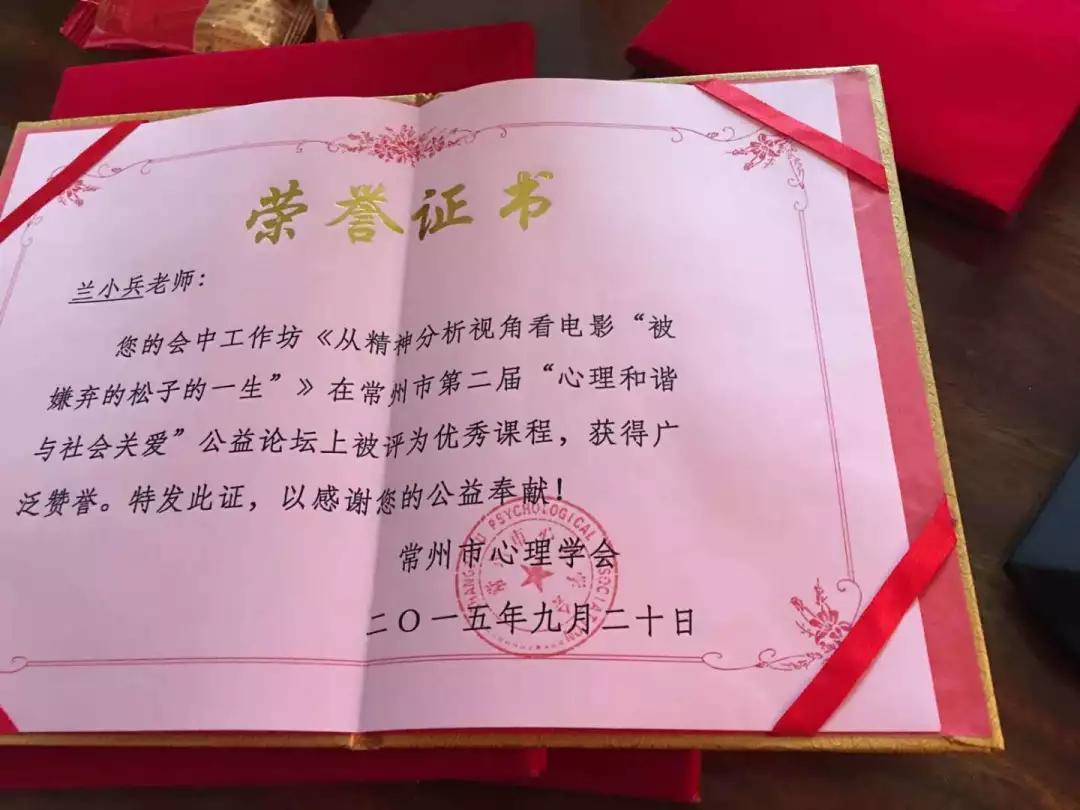 荣誉证书
兰小兵老师：
您的会中工作坊《从精神分析视角看电影“被
嫌弃的松子的一生”》在常州市第二届“心理和谐
与社会关爱”公益论坛上被评为优秀课程，获得广
泛赞誉。特发此证，以感谢您的公益奉献！
PSYCHOLOGICAL
常州市心理学会
二〇一五年九月二十日